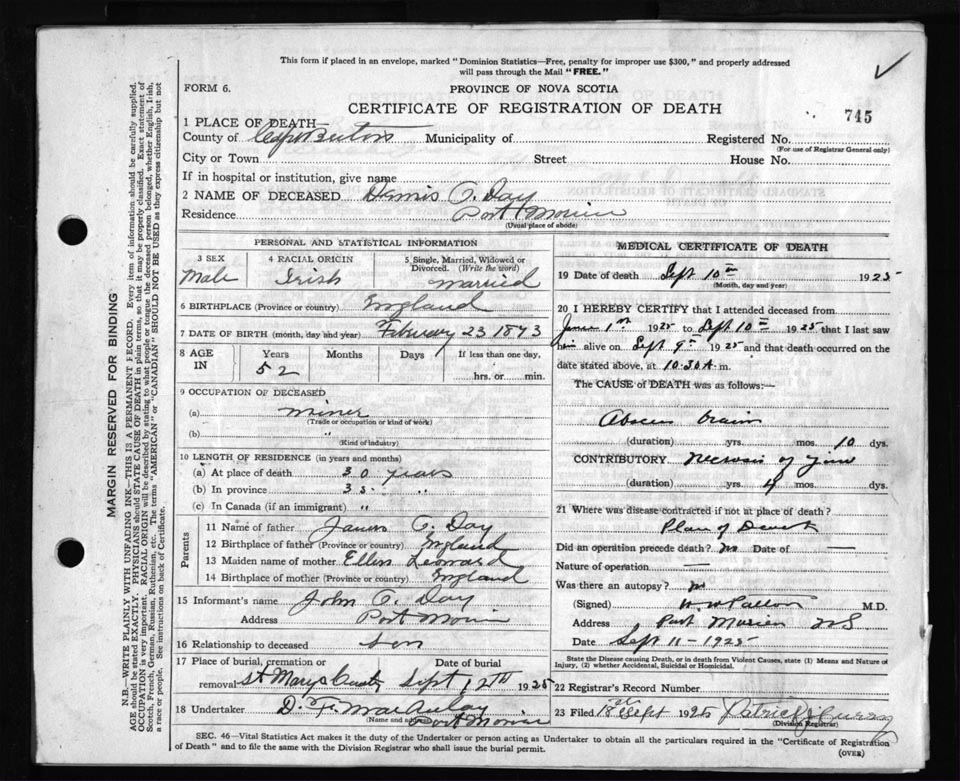 This form if placed in an envelope, marked "Dominion Statistics—Free, penalty for improper use $300," and properly addressed
will pass through the Mail "FREE."
FORM 6.
PROVINCE OF NOVA SCOTIA
CERTIFICATE OF REGISTRATION OF DEATH
745
1 PLACE OF DEATH—
County of Cape Breton Municipality of Registered No.
(For use of Registrar General only)
City or Town Street House No.
If in hospital or institution, give name
2 NAME OF DECEASED Dennis O. Day
Residence Port Morien
(Usual place of abode)
PERSONAL AND STATISTICAL INFORMATION
3 SEX 4 RACIAL ORIGIN 5 Single, Married, Widowed or
Divorced. (Write the word)
Male Irish married
6 BIRTHPLACE (Province or country) England
7 DATE OF BIRTH (month, day and year) February 23 1873
8 AGE IN Years Months Days If less than one day,
52 hrs. or min.
9 OCCUPATION OF DECEASED
(a) miner
(Trade or occupation or kind of work)
(b) "
(Kind of industry)
10 LENGTH OF RESIDENCE (in years and months)
(a) At place of death 30 years
(b) In province 35 "
(c) In Canada (if an immigrant) "
Parents
11 Name of father James O. Day
12 Birthplace of father (Province or country) England
13 Maiden name of mother Ellen Leonard
14 Birthplace of mother (Province or country) England
15 Informant's name John O. Day
Address Port Morien
16 Relationship to deceased Son
17 Place of burial, cremation or Date of burial
removal St Marys Sept 12th 1925
18 Undertaker D. MacAulay
(Name and address) Port Morien
MEDICAL CERTIFICATE OF DEATH
19 Date of death Sept 10th 1925
(Month, day and year)
20 I HEREBY CERTIFY that I attended deceased from
June 1st 1925 to Sept 10th 1925 that I last saw
him alive on Sept 9th 1925 and that death occurred on
date stated above, at 10.30 A. m.
The CAUSE of DEATH was as follows:—
Abscess brain
(duration) yrs. mos. 10 dys.
CONTRIBUTORY Necrosis of Jaw
(duration) yrs. 4 mos. dys.
21 Where was disease contracted if not at place of death?
Place of Death
Did an operation precede death? no Date of —
Nature of operation —
Was there an autopsy? no
(Signed) M.D.
Address Port Morien NS
Date Sept 11-1925
State the Disease causing Death, or in death from Violent Causes, state (1) Means and Nature of
Injury, (2) whether Accidental, Suicidal or Homicidal.
22 Registrar's Record Number
23 Filed 18 Sept 1925 Patrick J Curry
(Division Registrar)
SEC. 46—Vital Statistics Act makes it the duty of the Undertaker or person acting as Undertaker to obtain all the particulars required in the "Certificate of Registration
of Death" and to file the same with the Division Registrar who shall issue the burial permit.
(OVER)
MARGIN RESERVED FOR BINDING
N.B.—WRITE PLAINLY WITH UNFADING INK—THIS IS A PERMANENT RECORD. Every item of information should be carefully supplied.
AGE should be stated EXACTLY. PHYSICIANS should STATE CAUSE OF DEATH in plain terms, so that it may be properly classified. Exact statement of
OCCUPATION is very important. RACIAL ORIGIN will be described by stating to what people or tongue the deceased person belonged, whether English, Irish,
Scotch, French, German, Russian, Ruthenian, etc. The terms "AMERICAN" or "CANADIAN" SHOULD NOT BE USED as they express citizenship but not
a race or people. See instructions on back of Certificate.